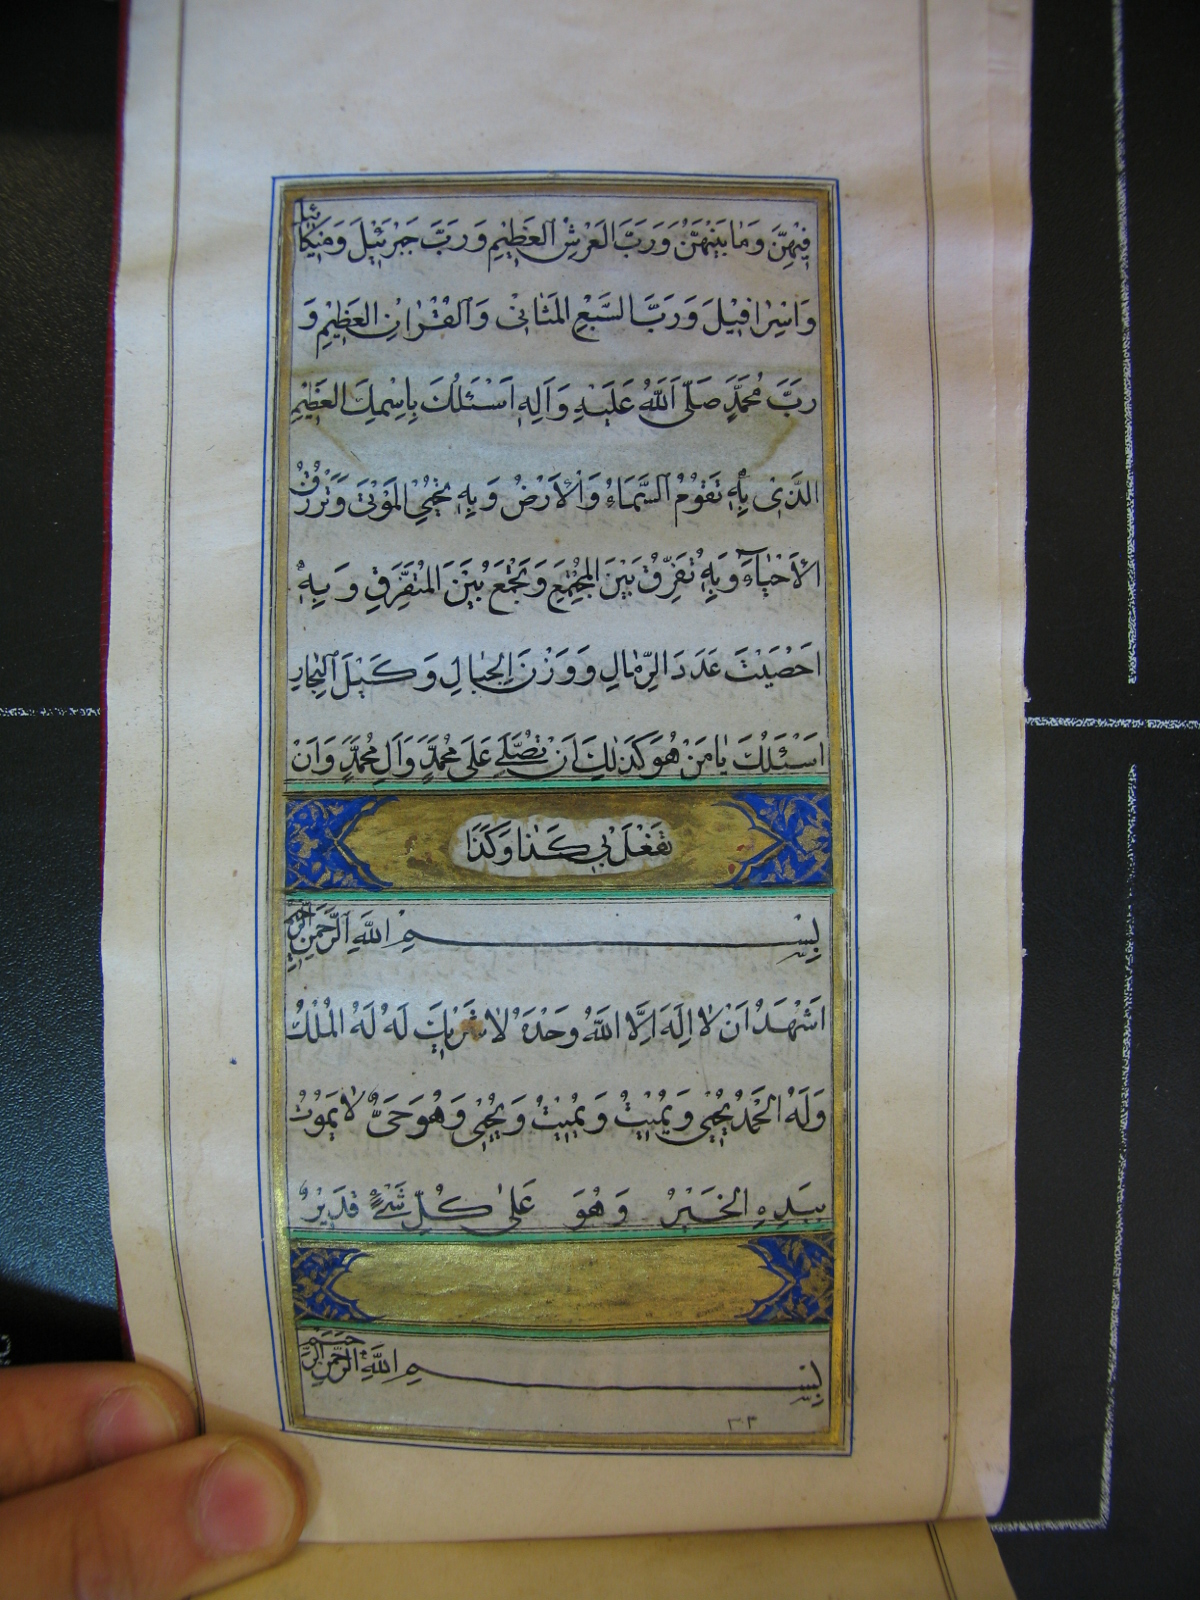 فِيهِنَّ وَمَا بَيْنَهُنَّ وَرَبَّ الْعَرْشِ الْعَظِيْمِ وَرَبَّ جَبْرَئِيْلَ وَمِيْكَائيل
وَاِسْرٰافِيْلَ وَرَبَّ السَّبْعِ الْمَثٰانِىْ وَالْقُرْاٰنِ الْعَظِيْمِ وَ
رَبَّ مُحَمَّدٍ صَلَّى اللّٰهُ عَلَيْهِ وَاٰلِهِ اَسْئَلُكَ بِاِسْمِكَ الْعَظِيْمِ
الَّذِىْ بِهِ تَقُوْمُ السَّمَاءُ وَالْاَرْضُ وَبِهِ يُحْيِى الْمَوْتٰى وَتَرْزُقُ
الْاَحْيٰاءَ وَبِهِ تُفَرِّقُ بَيْنَ الْمُجْتَمِعِ وَتَجْمَعُ بَيْنَ الْمُتَفَرِّقِ وَبِهِ
اَحْصَيْتَ عَدَدَ الرِّمٰالِ وَوَزْنَ الْجِبٰالِ وَكَيْلَ الْبِحٰارِ
اَسْئَلُكَ يٰا مَنْ هُوَ كَذٰلِكَ اَنْ تُصَلِّىَ عَلٰى مُحَمَّدٍ وَاٰلِ مُحَمَّدٍ وَاَنْ
تَفْعَلَ بِىْ كَذٰا وَكَذٰا
بِسْمِ اللّٰهِ الرَّحْمٰنِ الرَّحِيْمِ
اَشْهَدُ اَنْ لٰا اِلٰهَ اِلَّا اللّٰهُ وَحْدَهُ لٰا شَرِيْكَ لَهُ لَهُ الْمُلْكُ
وَلَهُ الْحَمْدُ يُحْيِى وَيُمِيْتُ وَيُمِيْتُ وَيُحْيِى وَهُوَ حَىٌّ لٰا يَمُوْتُ
بِيَدِهِ الْخَيْرُ وَهُوَ عَلٰى كُلِّ شَىْءٍ قَدِيْرٌ
بِسْمِ اللّٰهِ الرَّحْمٰنِ الرَّحِيْمِ
٣٣